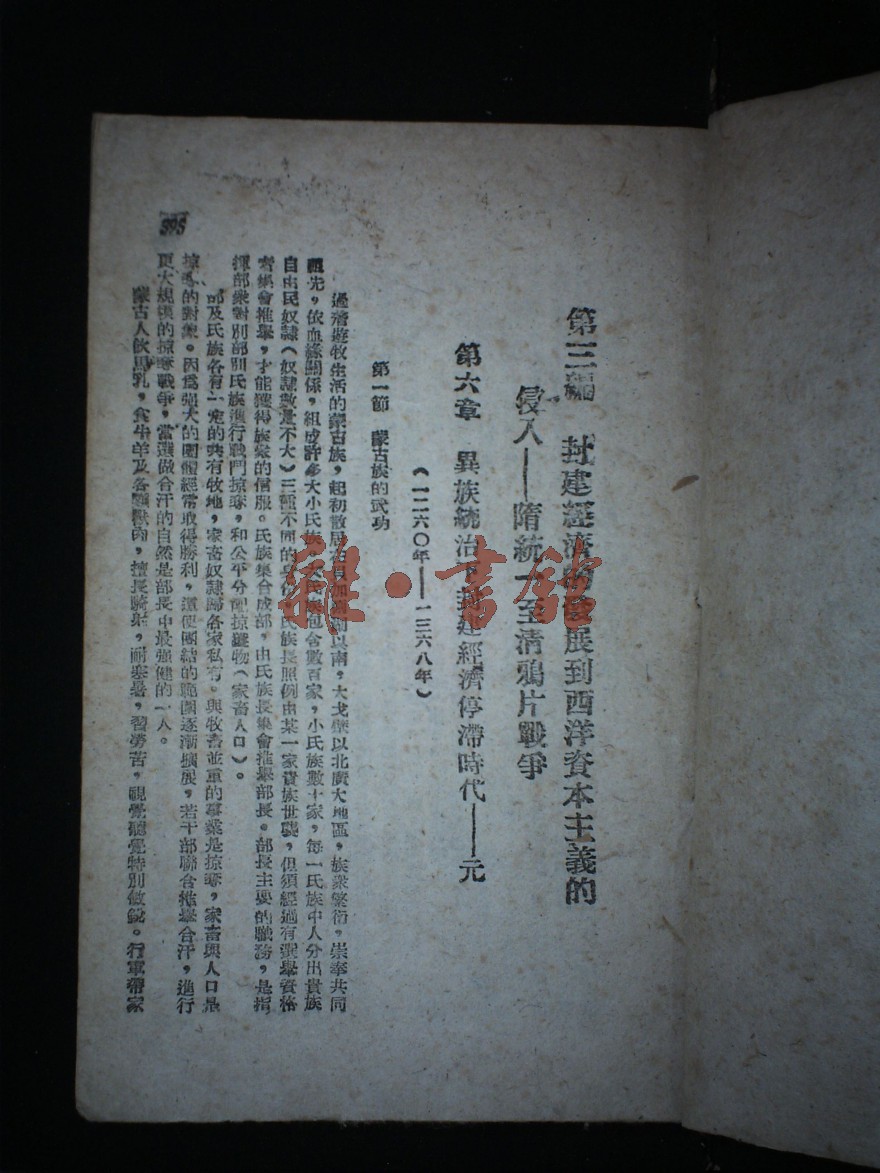 第三編 封建經濟的發展到西洋資本主義的
侵入——隋統一至清鴉片戰爭
第六章 異族統治下封建經濟停滯時代——元
(一二六〇年——一三六八年)
第一節 蒙古族的武功
過着遊牧生活的蒙古族,起初散居在貝加爾湖以南,大戈壁以北廣大地區,族衆繁衍,崇奉共同
祖先,依血緣關係,組成許多大小氏族,大氏族包含數百家,小氏族數十家,每一氏族中人分出貴族
自由民奴隸(奴隸數量不大)三種不同的身份,氏族長照例由某一家貴族世襲,但須經過有選舉資格
者集會推舉,才能獲得族衆的信服。氏族集合成部,由氏族長集會推舉部長。部長主要的職務,是指
揮部衆對別部別氏族進行戰鬥掠奪,和公平分配掠獲物(家畜人口)。
部及氏族各有一定的共有牧地,家畜奴隸歸各家私有。與牧畜並重的事業是掠奪,家畜與人口是
掠奪的對象。因爲強大的團體經常取得勝利,這使團結的範圍逐漸擴展,若干部聯合推舉合汗,進行
更大規模的掠奪戰爭,當選做合汗的自然是部長中最強健的一人。
蒙古人飲馬乳,食牛羊及各種獸肉,擅長騎射,耐寒暑,習勞苦,視覺聽覺特別敏銳。行軍帶家
395
雜·書館